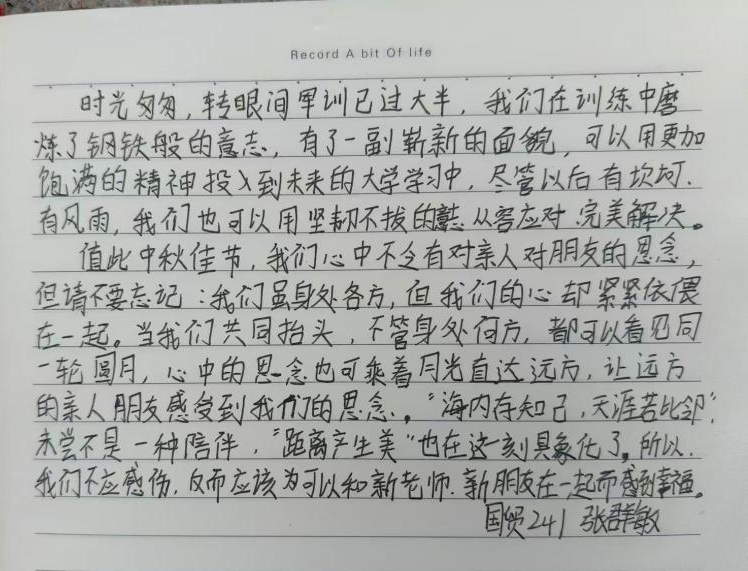 Record A bit Of life
时光匆匆，转眼间军训已过大半，我们在训练中磨
炼了钢铁般的意志，有了一副崭新的面貌，可以用更加
饱满的精神投入到未来的大学学习中，尽管以后有坎坷、
有风雨，我们也可以用坚韧不拔的 从容应对、完美解决。
值此中秋佳节，我们心中不乏有对亲人对朋友的思念，
但请不要忘记：我们虽身处各方，但我们的心却紧紧依偎
在一起。当我们共同抬头，不管身处何方，都可以看见同
一轮圆月，心中的思念也可乘着月光直达远方，让远方
的亲人朋友感受到我们的思念。"海内存知己，天涯若比邻"，
未尝不是一种陪伴，"距离产生美"也在这一刻具象化了。所以，
我们不应感伤，反而应该为可以和新老师、新朋友在一起而感到幸福。
国贸241 张群敏